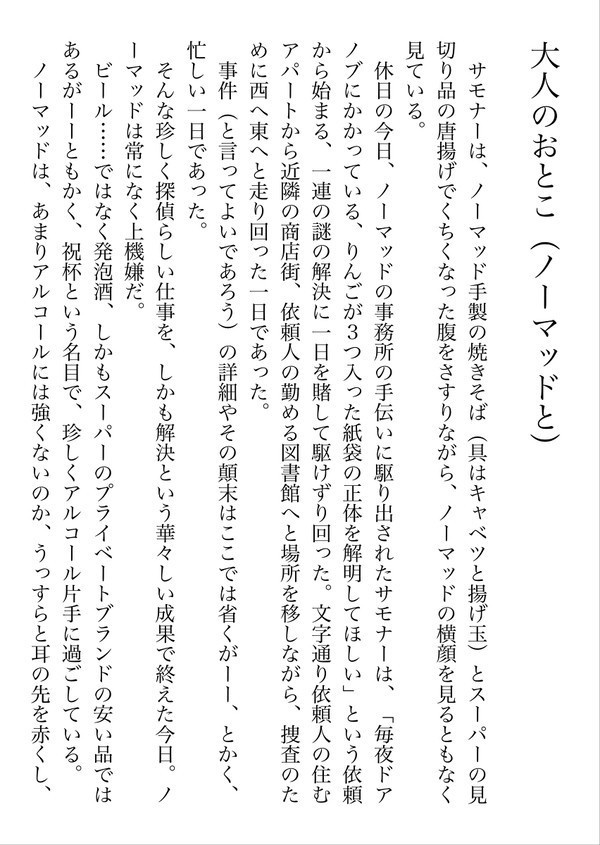 大人のおとこ（ノーマッドと）
サモナーは、ノーマッド手製の焼きそば（具はキャベツと揚げ玉）とスーパーの見
切り品の唐揚げでくちくなった腹をさすりながら、ノーマッドの横顔を見るともなく
見ている。
休日の今日、ノーマッドの事務所の手伝いに駆り出されたサモナーは、「毎夜ドア
ノブにかかっている、りんごが３つ入った紙袋の正体を解明してほしい」という依頼
から始まる、一連の謎の解決に一日を賭して駆けずり回った。文字通り依頼人の住む
アパートから近隣の商店街、依頼人の勤める図書館へと場所を移しながら、捜査のた
めに西へ東へと走り回った一日であった。
事件（と言ってよいであろう）の詳細やその顛末はここでは省くがーー、とかく、
忙しい一日であった。
そんな珍しく探偵らしい仕事を、しかも解決という華々しい成果で終えた今日。ノ
ーマッドは常になく上機嫌だ。
ビール……ではなく発泡酒、しかもスーパーのプライベートブランドの安い品では
あるがーーともかく、祝杯という名目で、珍しくアルコール片手に過ごしている。
ノーマッドは、あまりアルコールには強くないのか、うっすらと耳の先を赤くし、